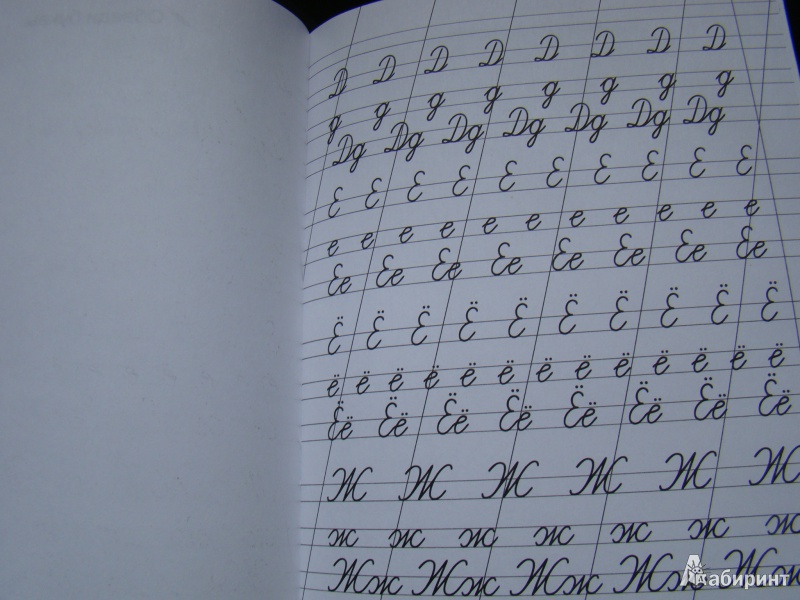 Д Д Д Д Д Д Д Д
д д д д д д д д
Дд Дд Дд Дд Дд Дд Дд
Е Е Е Е Е Е Е Е Е Е
е е е е е е е е е е е
Ее Ее Ее Ее Ее Ее Ее Ее
Ё Ё Ё Ё Ё Ё Ё Ё Ё Ё
ё ё ё ё ё ё ё ё ё ё ё ё ё
Ёё Ёё Ёё Ёё Ёё Ёё Ёё Ёё
Ж Ж Ж Ж Ж Ж
ж ж ж ж ж ж ж
Жж Жж Жж Жж Жж
Лабиринт